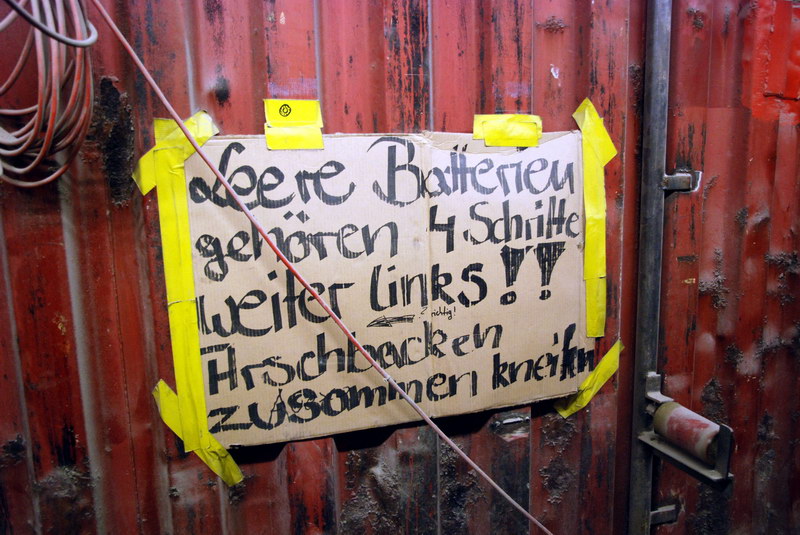 Leere Batterien
gehören 4 Schritte
weiter links!!
richtig!
Arschbacken
zusammen kneifen